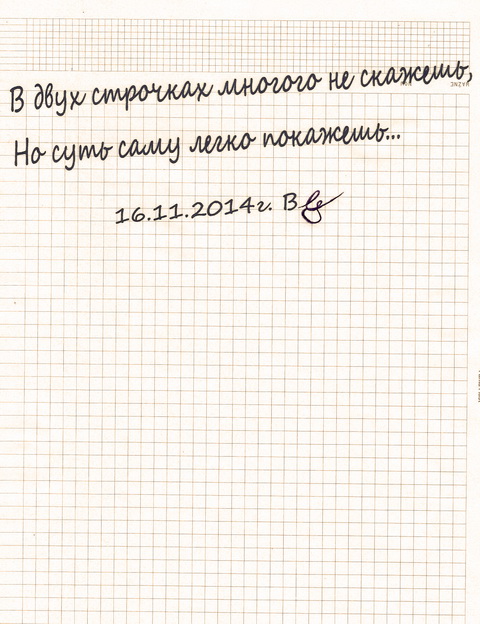 В двух строчках многого не скажешь,
Но суть саму легко покажешь...
16.11.2014г. В